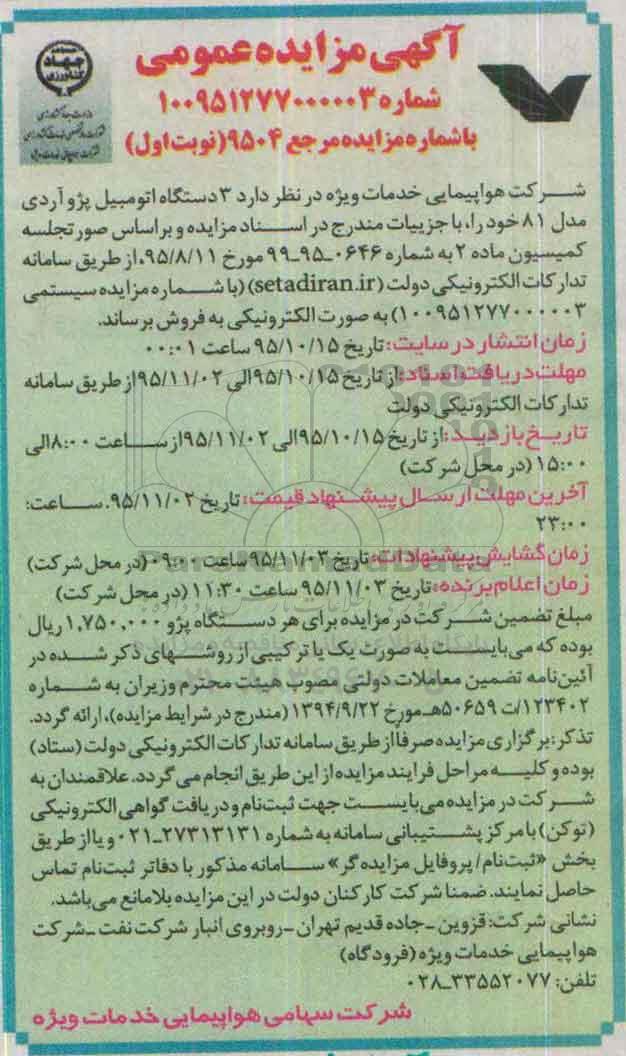 آگهی مزایده عمومی
شماره ۱۰۰۹۵۱۲۷۷۰۰۰۰۰۳
با شماره مزایده مرجع ۹۵۰۴ (نوبت اول)
جهاد
کشاورزی
شرکت هواپیمایی خدمات ویژه در نظر دارد ۳ دستگاه اتومبیل پژو آردی
مدل ۸۱ خود را، با جزییات مندرج در اسناد مزایده و بر اساس صورتجلسه
کمیسیون ماده ۲ به شماره ۰۶۴۶ـ۹۵ـ۹۹ مورخ ۹۵/۸/۱۱، از طریق سامانه
تدارکات الکترونیکی دولت (setadiran.ir) (با شماره مزایده سیستمی
۱۰۰۹۵۱۲۷۷۰۰۰۰۰۳) به صورت الکترونیکی به فروش برساند.
زمان انتشار در سایت: تاریخ ۹۵/۱۰/۱۵ ساعت ۰۰:۰۱
مهلت دریافت اسناد: از تاریخ ۹۵/۱۰/۱۵ الی ۹۵/۱۱/۰۲ از طریق سامانه
تدارکات الکترونیکی دولت
تاریخ بازدید: از تاریخ ۹۵/۱۰/۱۵ الی ۹۵/۱۱/۰۲ از ساعت ۸:۰۰ الی
۱۵:۰۰ (در محل شرکت)
آخرین مهلت ارسال پیشنهاد قیمت: تاریخ ۹۵/۱۱/۰۲. ساعت:
۲۳:۰۰
زمان گشایش پیشنهادات: تاریخ ۹۵/۱۱/۰۳ ساعت ۰۹:۰۰ (در محل شرکت)
زمان اعلام برنده: تاریخ ۹۵/۱۱/۰۳ ساعت ۱۱:۳۰ (در محل شرکت)
مبلغ تضمین شرکت در مزایده برای هر دستگاه پژو ۱,۷۵۰,۰۰۰ ریال
بوده که می‌بایست به صورت یک یا ترکیبی از روشهای ذکر شده در
آئین‌نامه تضمین معاملات دولتی مصوب هیئت محترم وزیران به شماره
۱۲۳۴۰۲/ت ۵۰۶۵۹هـ مورخ ۱۳۹۴/۹/۲۲ (مندرج در شرایط مزایده)، ارائه گردد.
تذکر: برگزاری مزایده صرفاً از طریق سامانه تدارکات الکترونیکی دولت (ستاد)
بوده و کلیه مراحل فرایند مزایده از این طریق انجام می‌گردد. علاقمندان به
شرکت در مزایده می‌بایست جهت ثبت‌نام و دریافت گواهی الکترونیکی
(توکن) با مرکز پشتیبانی سامانه به شماره ۲۷۳۱۳۱۳۱ـ۰۲۱ و یا از طریق
بخش «ثبت‌نام/ پروفایل مزایده‌گر» سامانه مذکور با دفاتر ثبت‌نام تماس
حاصل نمایند. ضمنا شرکت کارکنان دولت در این مزایده بلامانع می‌باشد.
نشانی شرکت: قزوین -جاده قدیم تهران -روبروی انبار شرکت نفت -شرکت
هواپیمایی خدمات ویژه (فرودگاه)
تلفن: ۳۳۵۵۲۰۷۷ـ۰۲۸
شرکت سهامی هواپیمایی خدمات ویژه